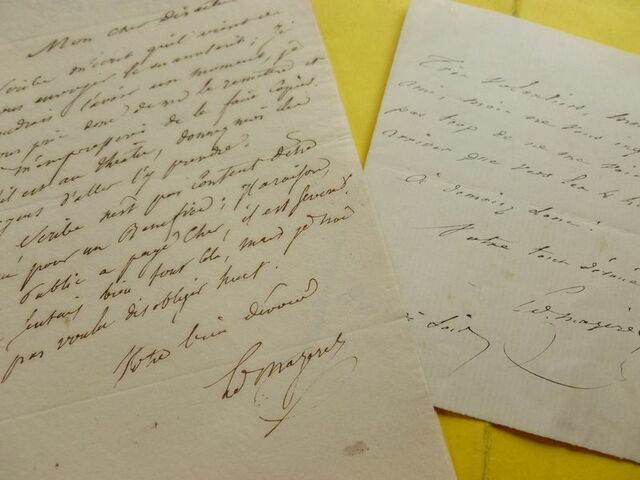 Mon cher directeur
Scribe m'écrit qu'il vient de
vous envoyer le manuscrit; Je
voudrais l'avoir un moment, je
vous prie donc de me le remettre et
m'empresserai de le faire copier.
s'il est au théâtre, donnez-moi les
moyens d'aller l'y prendre.
Scribe n'est pas content d'être
pour un Bénéfice; il a raison,
Public a payé cher, il est sévère.
sentais bien tout cela, mais je n'ai
pas voulu désobliger huet.
Votre bien dévoué
Ed. Mazères
Très volontiers,
ami, mais ne vous
pas trop de ne me voir
arriver que vers les 6 h
à demain donc!
Votre tout dévoué
Ed. Mazères